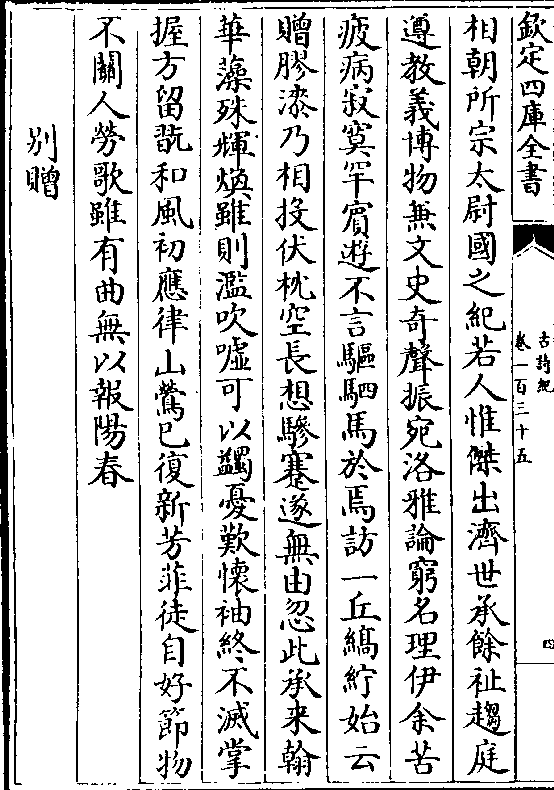 欽定四庫全書
古詩紀
卷一百三十五
四
相朝所宗太尉國之紀若人惟傑出濟世承餘祉趨庭
遵教義博物兼文史奇聲振宛洛雅論窮名理伊余苦
疲病寂寞罕賓遊不言驅駟馬於焉訪一丘縞紵始云
贈膠漆乃相投伏枕空長想驂蹇遂無由忽此承来翰
華藻殊輝煥雖則濫吹噓可以蠲憂歎懷袖終不滅掌
握方留翫和風初應律山鶯已復新芳菲徒自好節物
不關人勞歌雖有曲無以報陽春
别贈